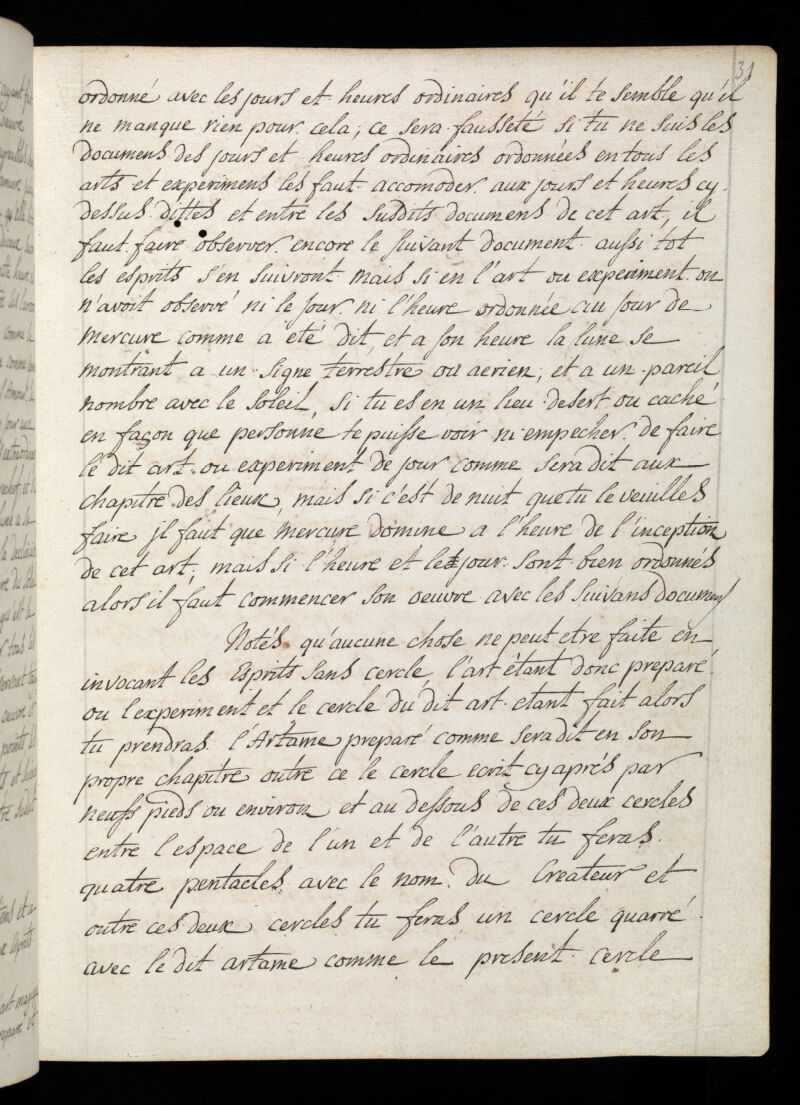 31
ordonné avec les jours et heures ordinaires qu'il te semble qu'il
ne manque rien pour cela; ce sera fausseté si tu ne suis les
documens des jours et heures ordinaires ordonnées en tous les
arts et experimens les faut accomoder aux jours et heures cy
dessus dittes et entre les susdits documens de cet art, il
faut faire observer encore le suivant document aussi tot
les esprits s'en suivront mais si en l'art ou experiment on
n'avoit observé ni le jour ni l'heure ordonnée au jour de
mercure comme a été dit, et a son heure la lune se
montrant a un signe terrestre ou aerien, et a un pareil
nombre avec le soleil, si tu es en un lieu desert ou caché
en façon que personne te puisse voir ni empecher de faire
le dit art ou experiment de jour comme sera dit aux
chapitre des lieux, mais si c'est de nuit que tu le veuilles
faire il faut que mercure domine a l'heure de l'inception
de cet art, mais si l'heure et le jour sont bien ordonnés
alors il faut commencer son oeuvre avec les suivans documens
Notés qu'aucune chose ne peut etre faite en
invocant les Esprits sans cercle, l'art étant donc preparé
ou l'experiment et le cercle du dit art etant fait alors
tu prendras l'Artame preparé comme sera dit en son
propre chapitre outre ce le cercle ecrit cy aprés par
neufs pieds ou environ et au dessous de ces deux cercles
entre l'espace de l'un et de l'autre tu feras
quatre pentacles avec le nom du Createur et
outre ces deux cercles tu feras un cercle quarré
avec le dit artame comme le present cercle